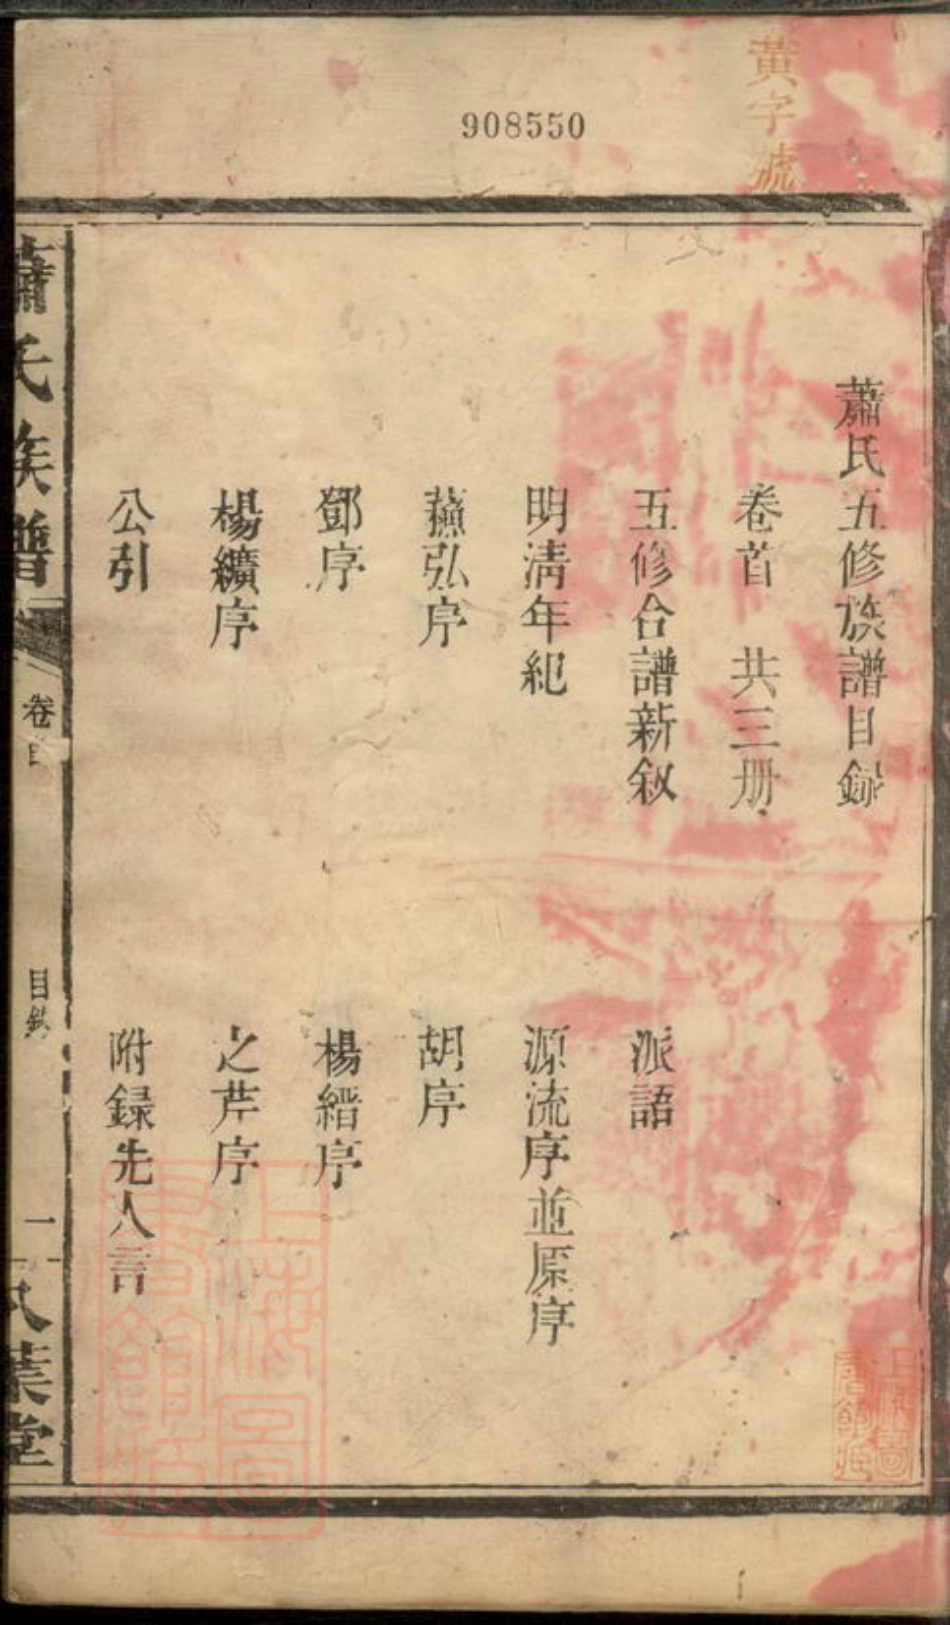 黃字號
908550
蕭氏五修族譜目錄
卷首　共三册
五修合譜新敘　派語
明清年紀　源流序並原序
蘓弘序　胡序
鄧序　楊縉序
楊纘序　之芹序
公引　附録先人言
蕭氏族譜
卷首
目錄
一
八葉堂
上海圖書館藏
上海圖書館藏